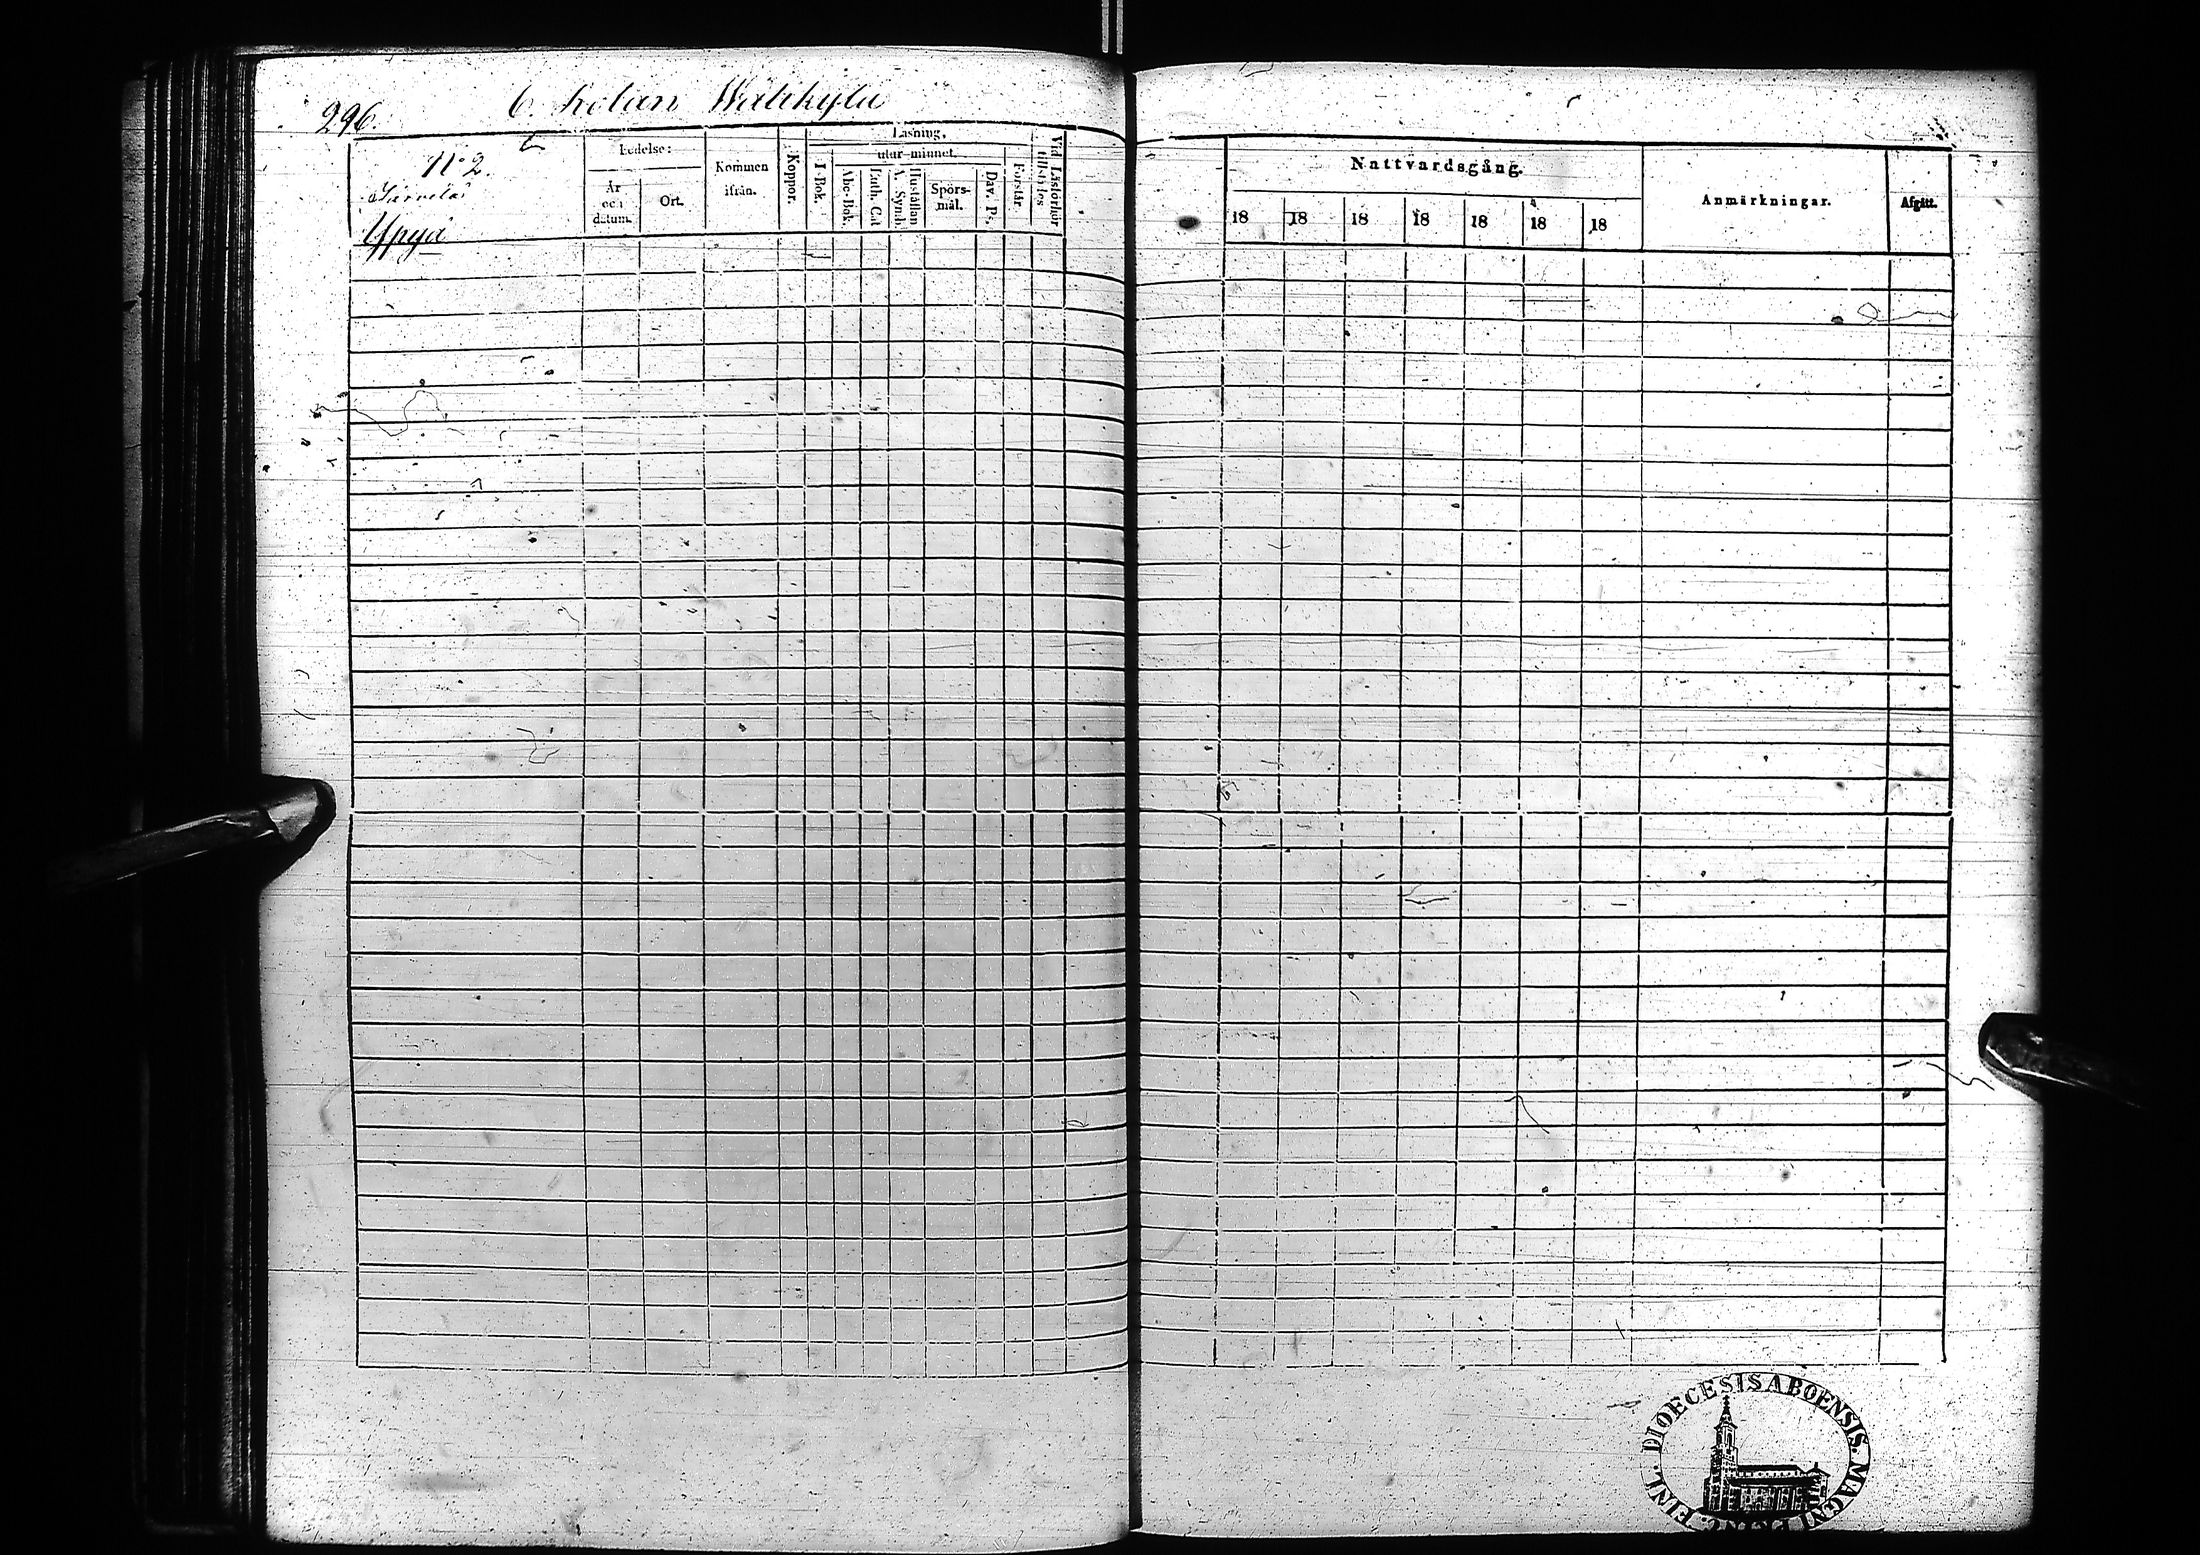 296.
6. Rotan Wälikylä
N:o 2.
Järvelä
Ypyä
Födelse:
År och datum.
Ort.
Kommen ifrån.
Koppor.
Läsning,
utur minnet.
I Bok.
Abc-Bok.
Luth. Cat
Hustaflan A. Symb.
Spörs-mål.
Dav. Ps.
Förstår
Vid Läsförhör tillstädes
Nattvardsgång.
18 18 18 18 18 18 18
Anmärkningar.
Afgått.
FINL. DIOECESIS ABOENSIS. MAGNI